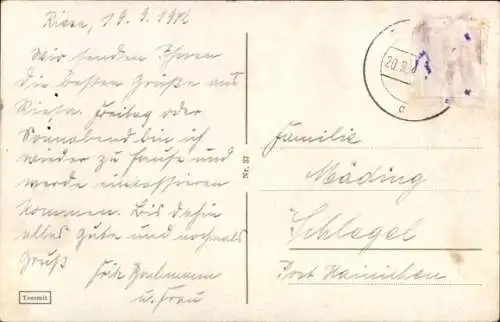 Riesa, 19.9.19
Wir senden Ihnen
die besten Grüße aus
Riesa. Freitag oder
Sonnabend bin ich
wieder zu Hause und
werde einkassieren
kommen. Bis dahin
alles gute und nochmals
Gruß
Fritz
u. Frau
Tensmit
Nr. 37
20.9.
Familie
Mäding
Schlegel
Post Hainichen